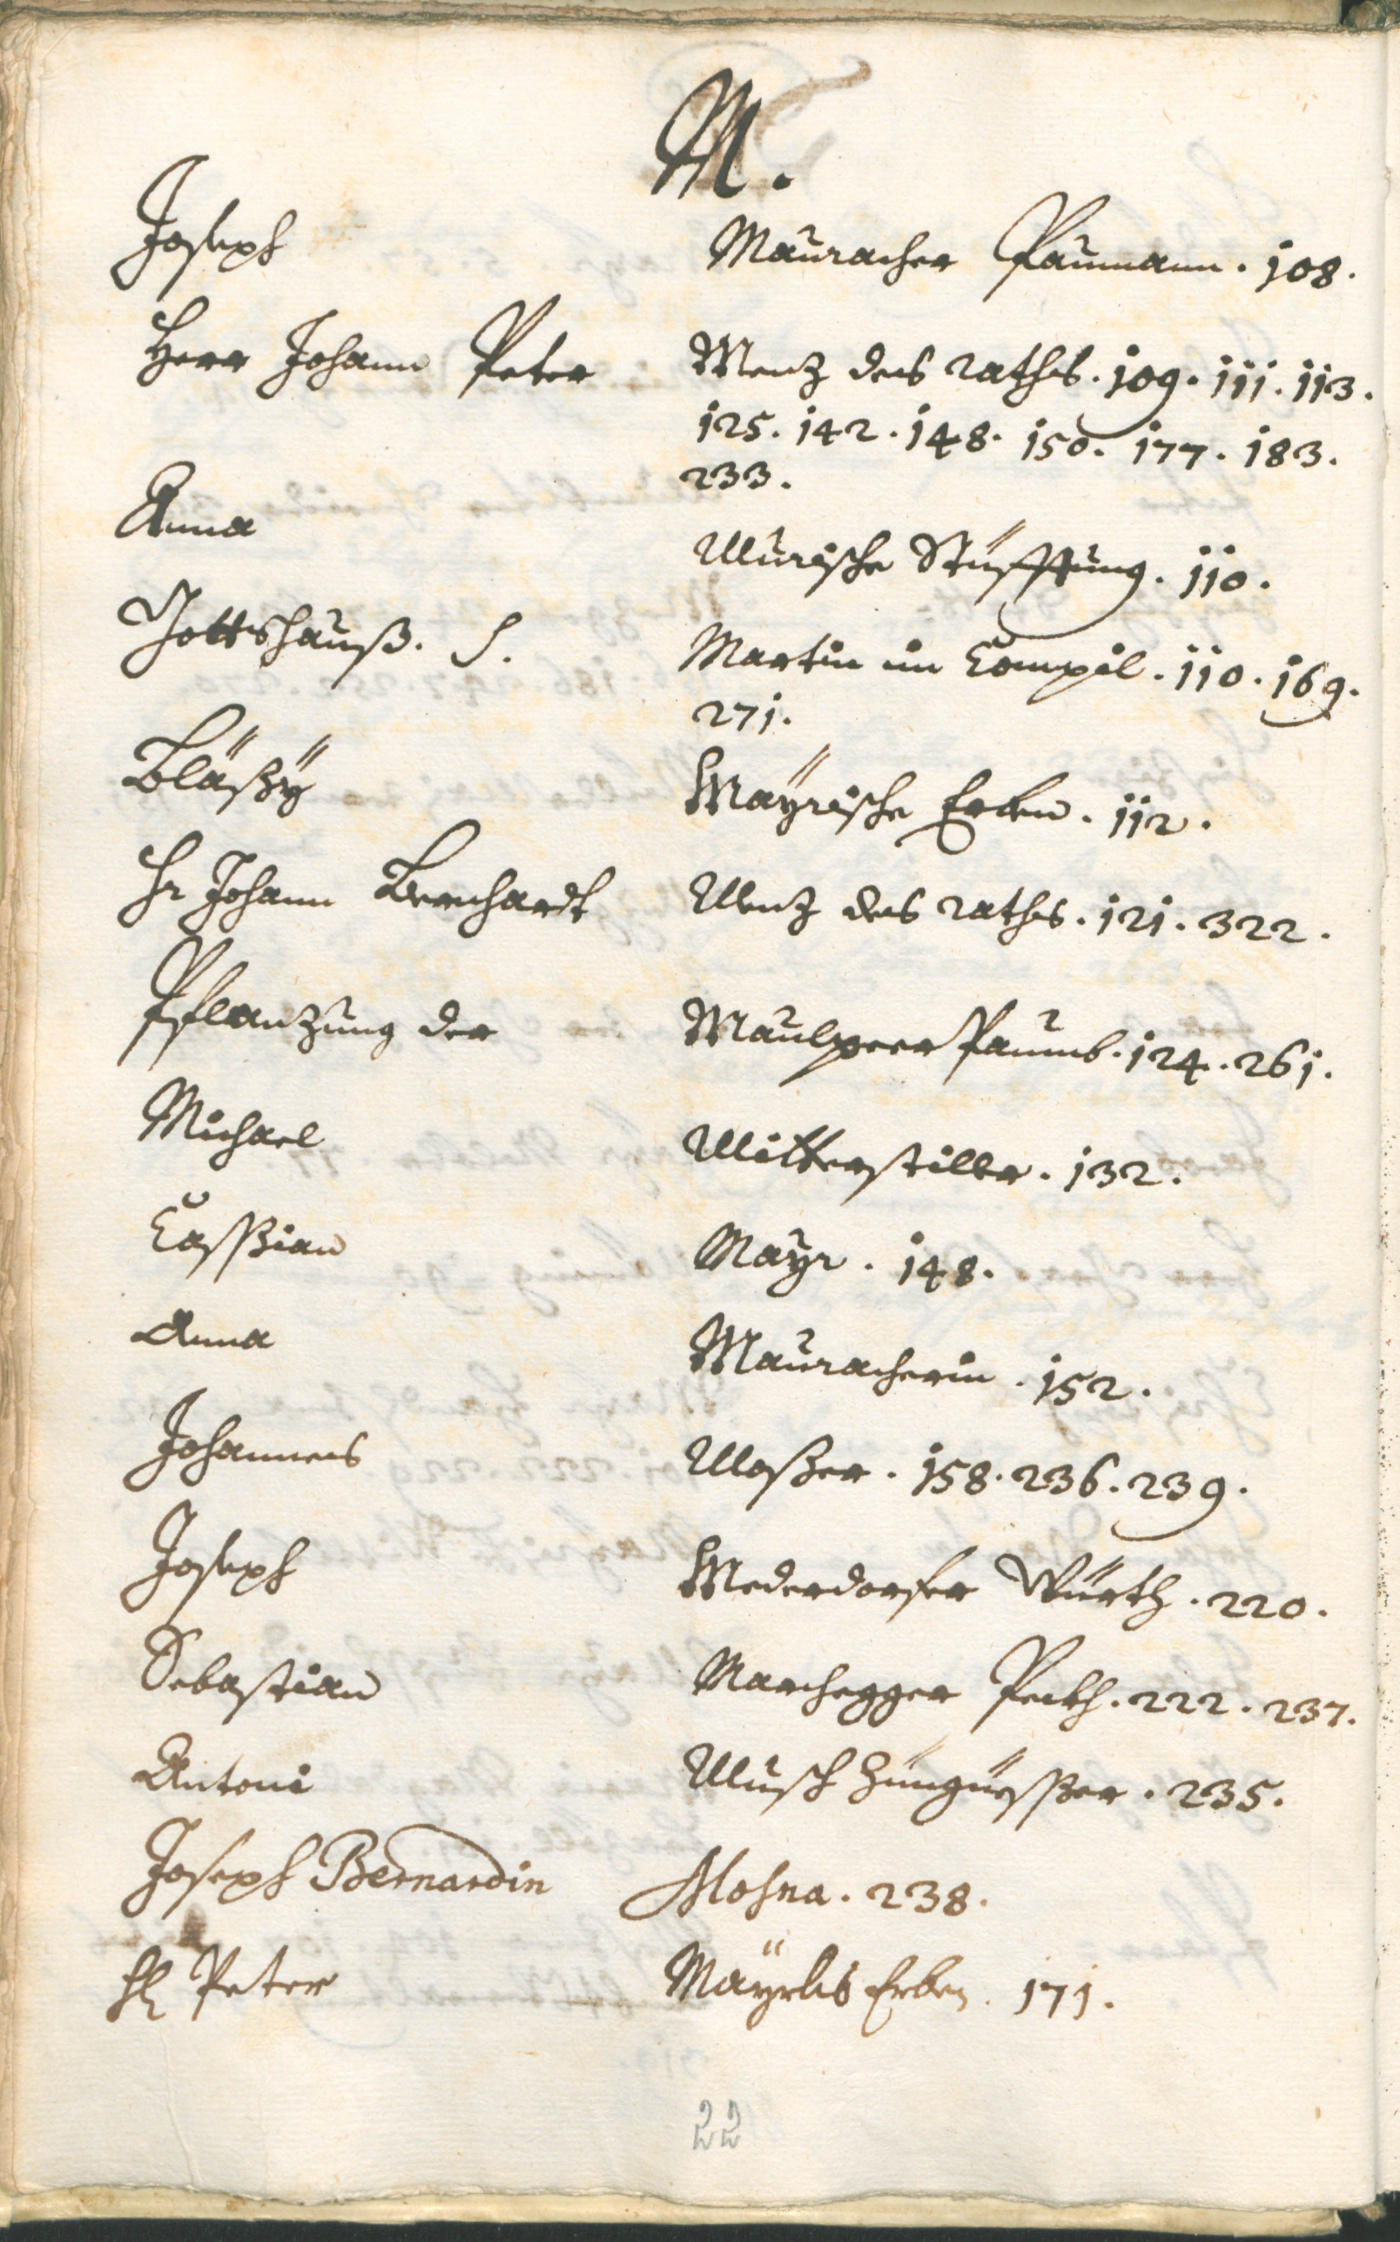 M.
Joseph Mauracher Paumann. 108.
Herr Johann Peter Menz des raths. 109. 111. 113.
125. 142. 148. 150. 177. 183.
233.
Anna Murische Stüfftung. 110.
Gottshauß. S. Martin im Campil. 110. 169.
271.
Bläßÿ Maÿrische Erben. 112.
Hr Johann Bernhardt Menz des raths. 121. 322.
Pflanzung der Maulpeer Paumb. 124. 261.
Michael Mitterstiller. 132.
Caßian Maÿr. 148.
Anna Mauracherin. 152.
Johannes Moßer. 158. 236. 239.
Joseph Mederdorfer Würth. 220.
Sebastian Marchegger Peckh. 222. 237.
Antoni Musch Züngüesser. 235.
Joseph Bernardin Mosna. 238.
H Peter Maÿrls Erben. 171.
22